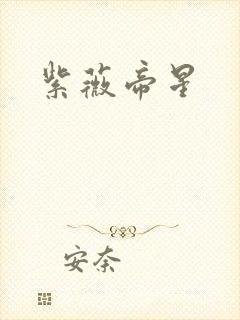 紫薇帝星
安奈